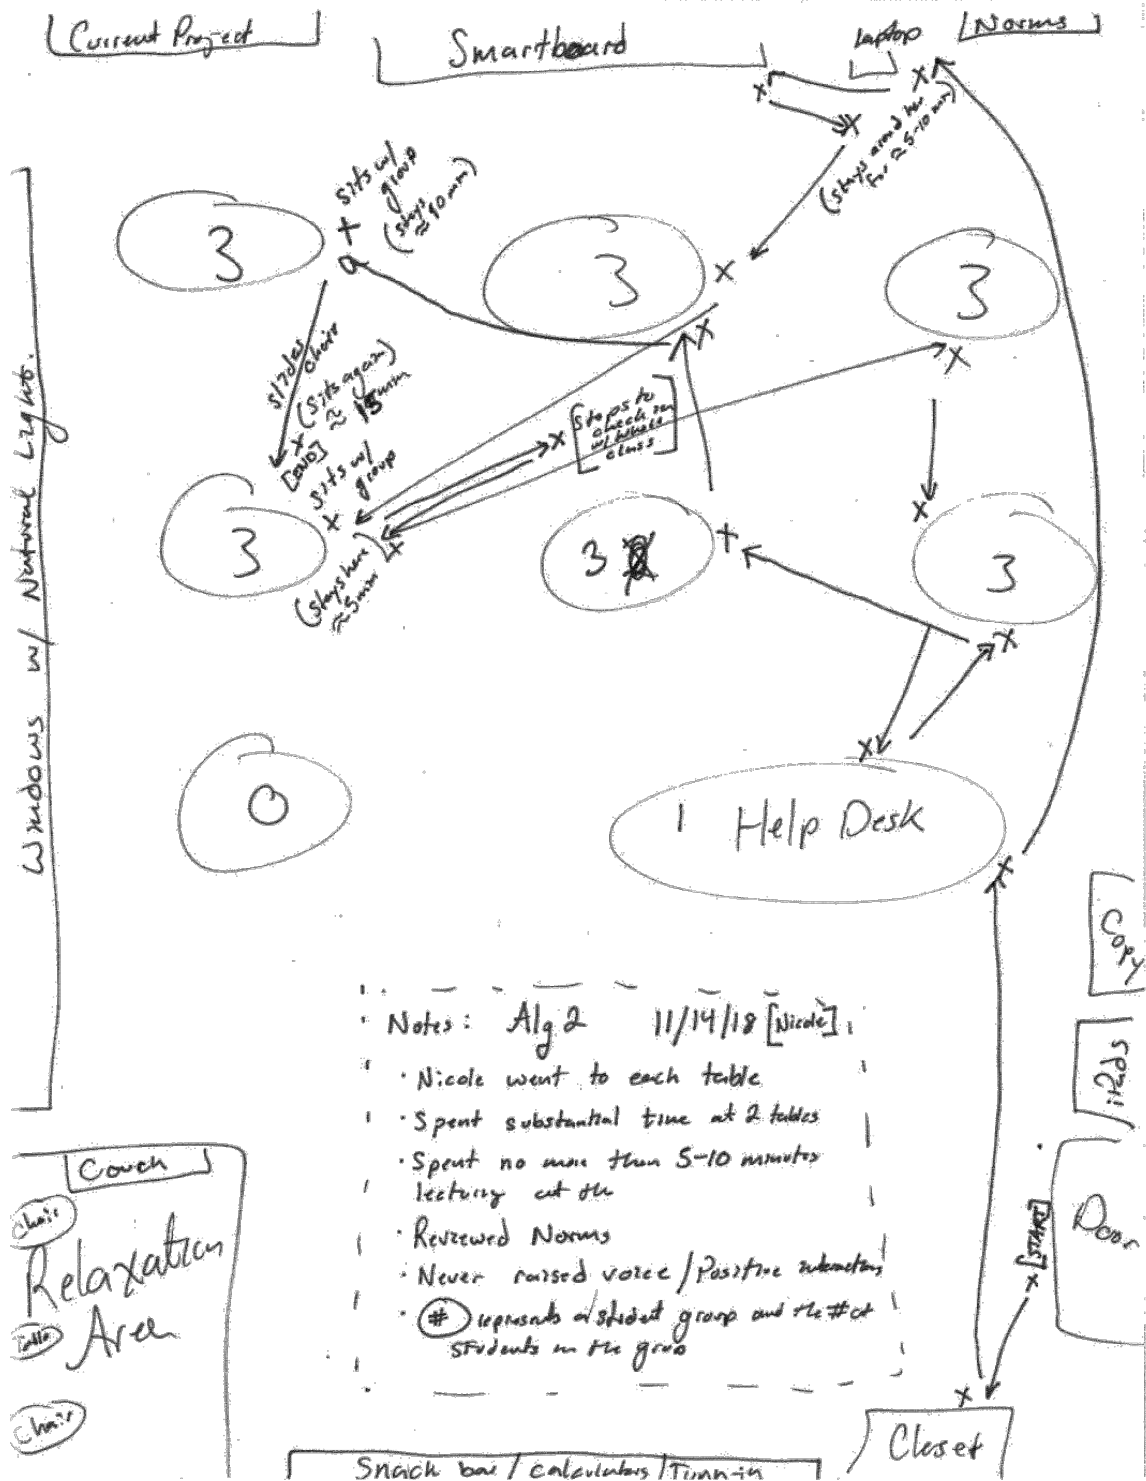 Current Project
Smartboard
Laptop
Norms
(stays around here
for ≈ 5-10 min)
sits w/
group
(stays
≈ 10 min)
3
3
3
slides
chair
(sits again)
≈ 15 min
[END]
sits w/
group
[Stops to
check in
w/ whole
class]
3
(stays here
≈ 5 min)
3
3
Windows w/ Natural Light.
0
1 Help Desk
Copy
iPads
Door
[START]
Notes: Alg 2 11/14/18 [Nicole]
· Nicole went to each table
· Spent substantial time at 2 tables
· Spent no more than 5-10 minutes
lecturing at the
· Reviewed Norms
· Never raised voice / Positive interactions
· # represents a student group and the # of
students in the group
Couch
Chair
Relaxation
Table
Area
Chair
Closet
Snack bar / calculators / Turn-in